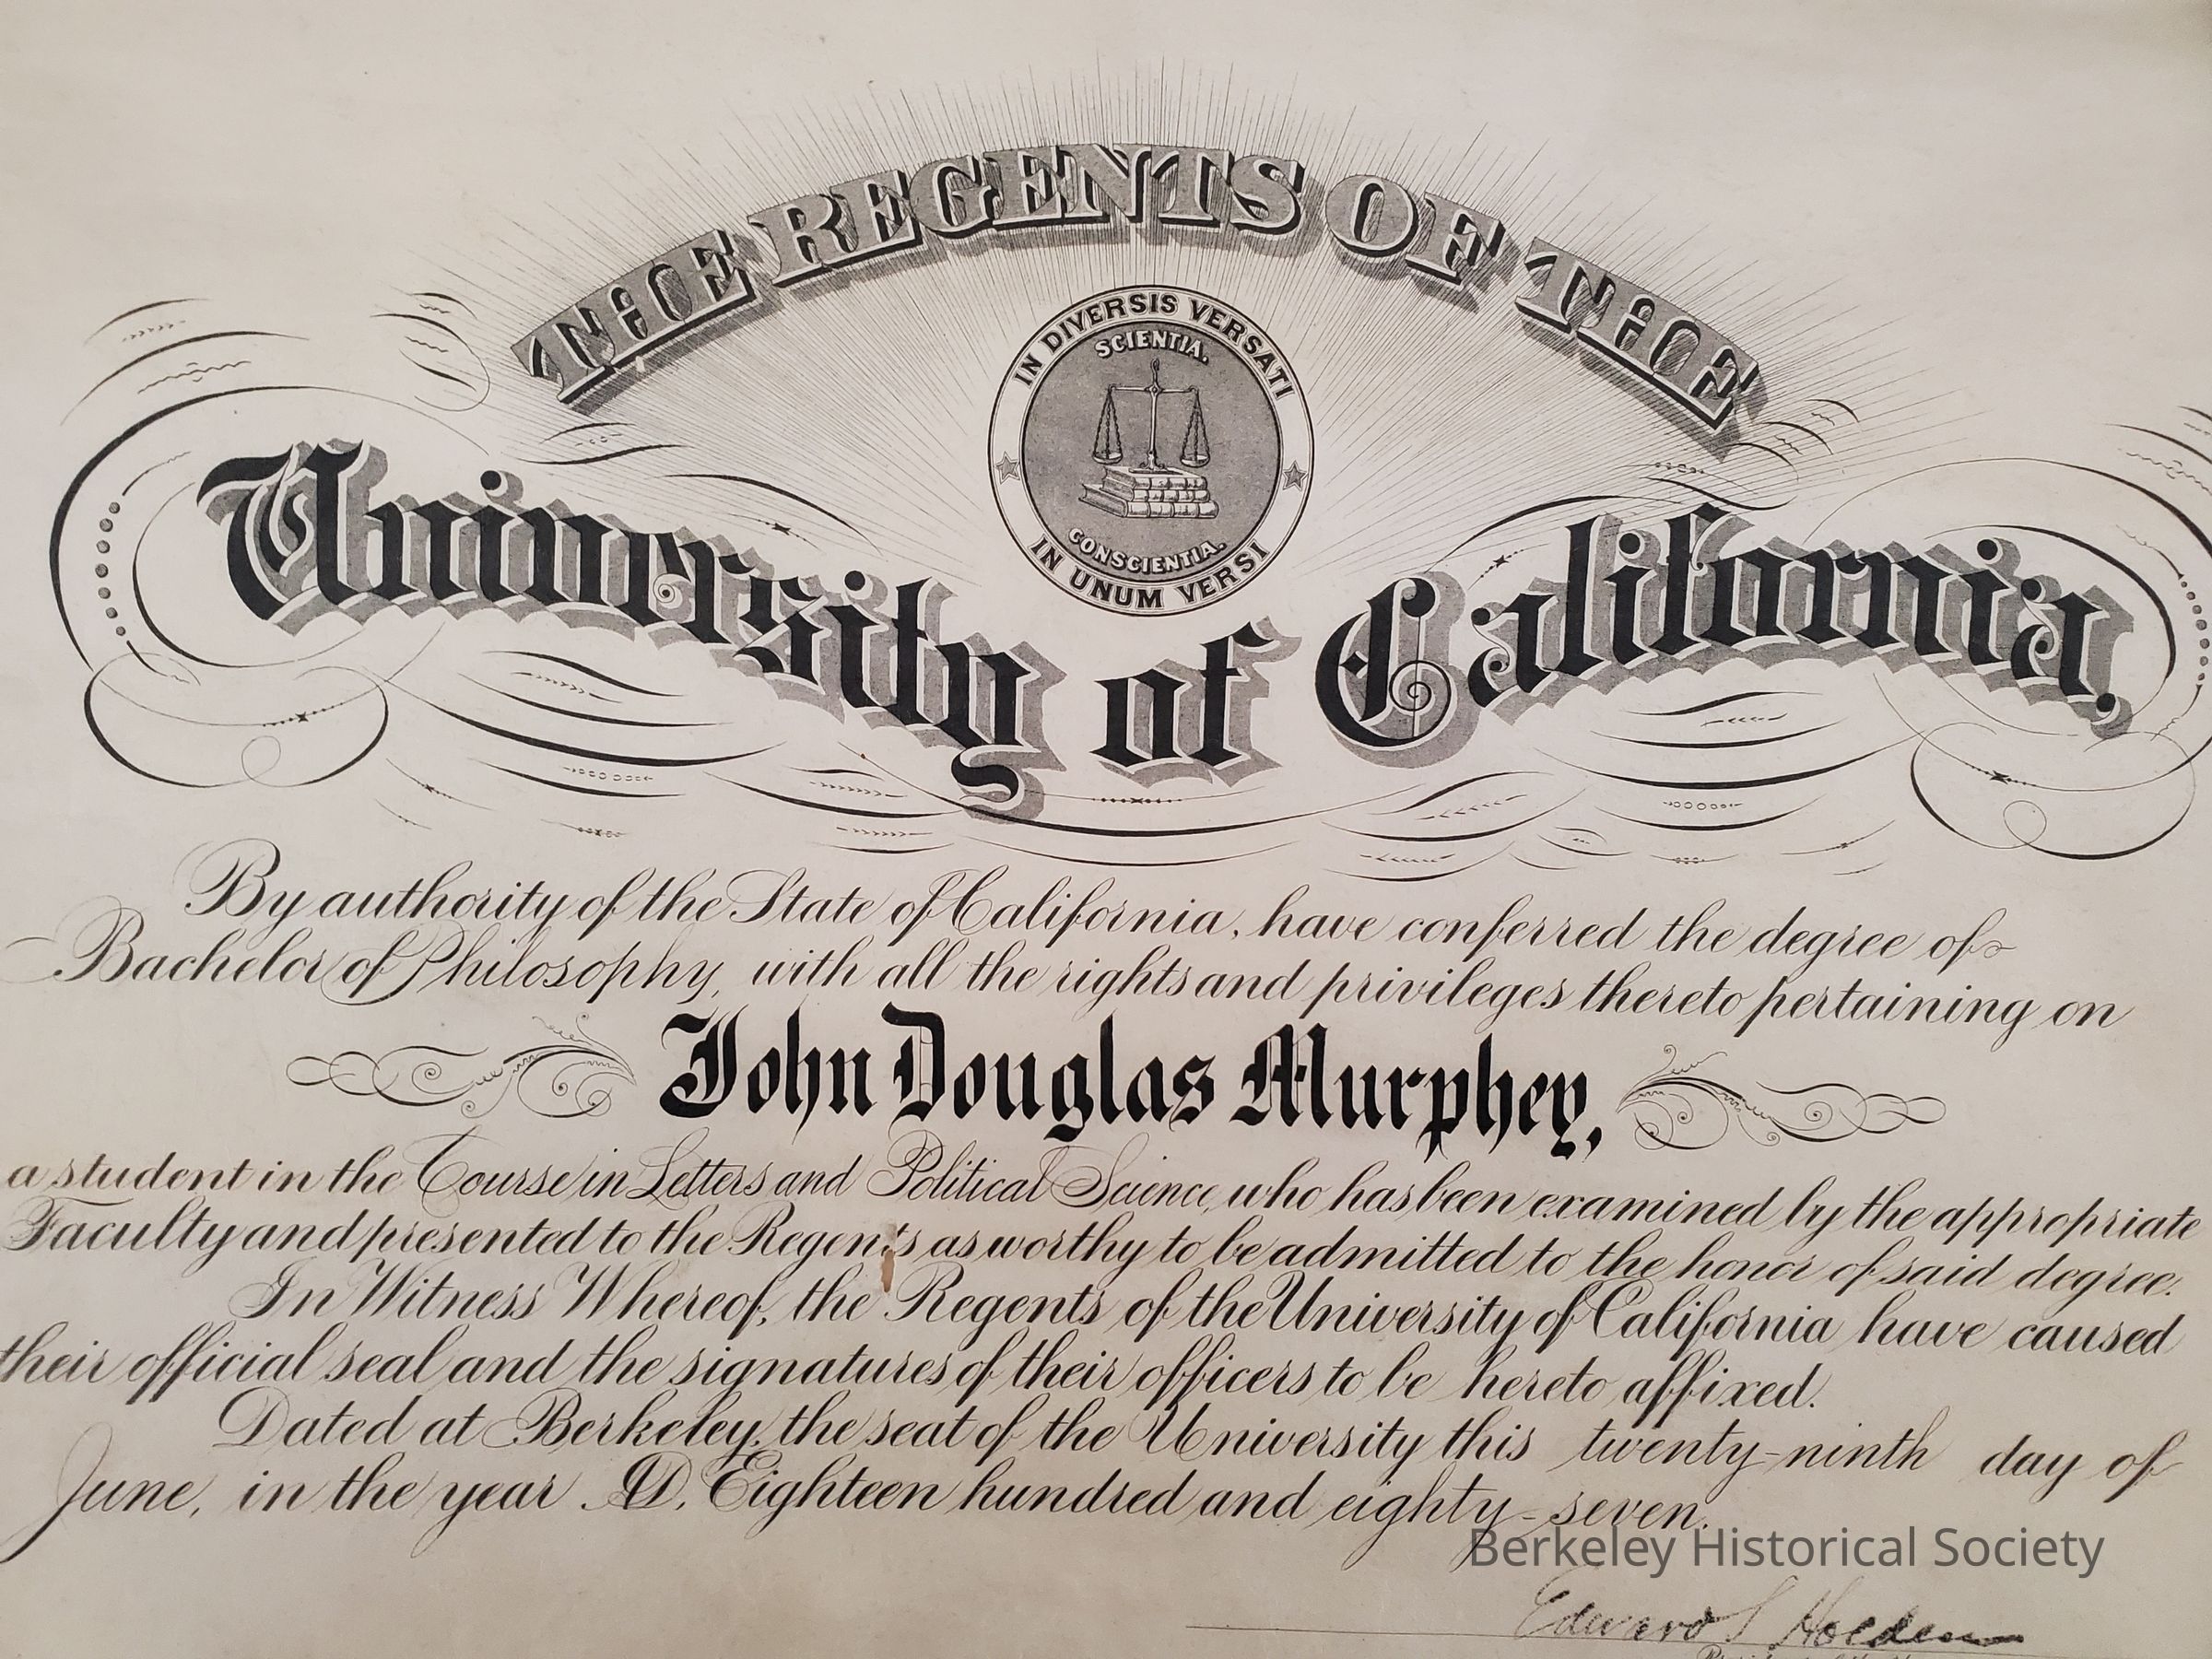 THE REGENTS OF THE
IN DIVERSIS VERSATI
SCIENTIA.
CONSCIENTIA.
IN UNUM VERSI
University of California,
By authority of the State of California, have conferred the degree of
Bachelor of Philosophy, with all the rights and privileges thereto pertaining on
John Douglas Murphey,
a student in the Course in Letters and Political Science, who has been examined by the appropriate
Faculty and presented to the Regents as worthy to be admitted to the honor of said degree.
In Witness Whereof, the Regents of the University of California have caused
their official seal and the signatures of their officers to be hereto affixed.
Dated at Berkeley, the seat of the University this twenty-ninth day of
June, in the year A.D. Eighteen hundred and eighty-seven.
Berkeley Historical Society
Edward S Holden